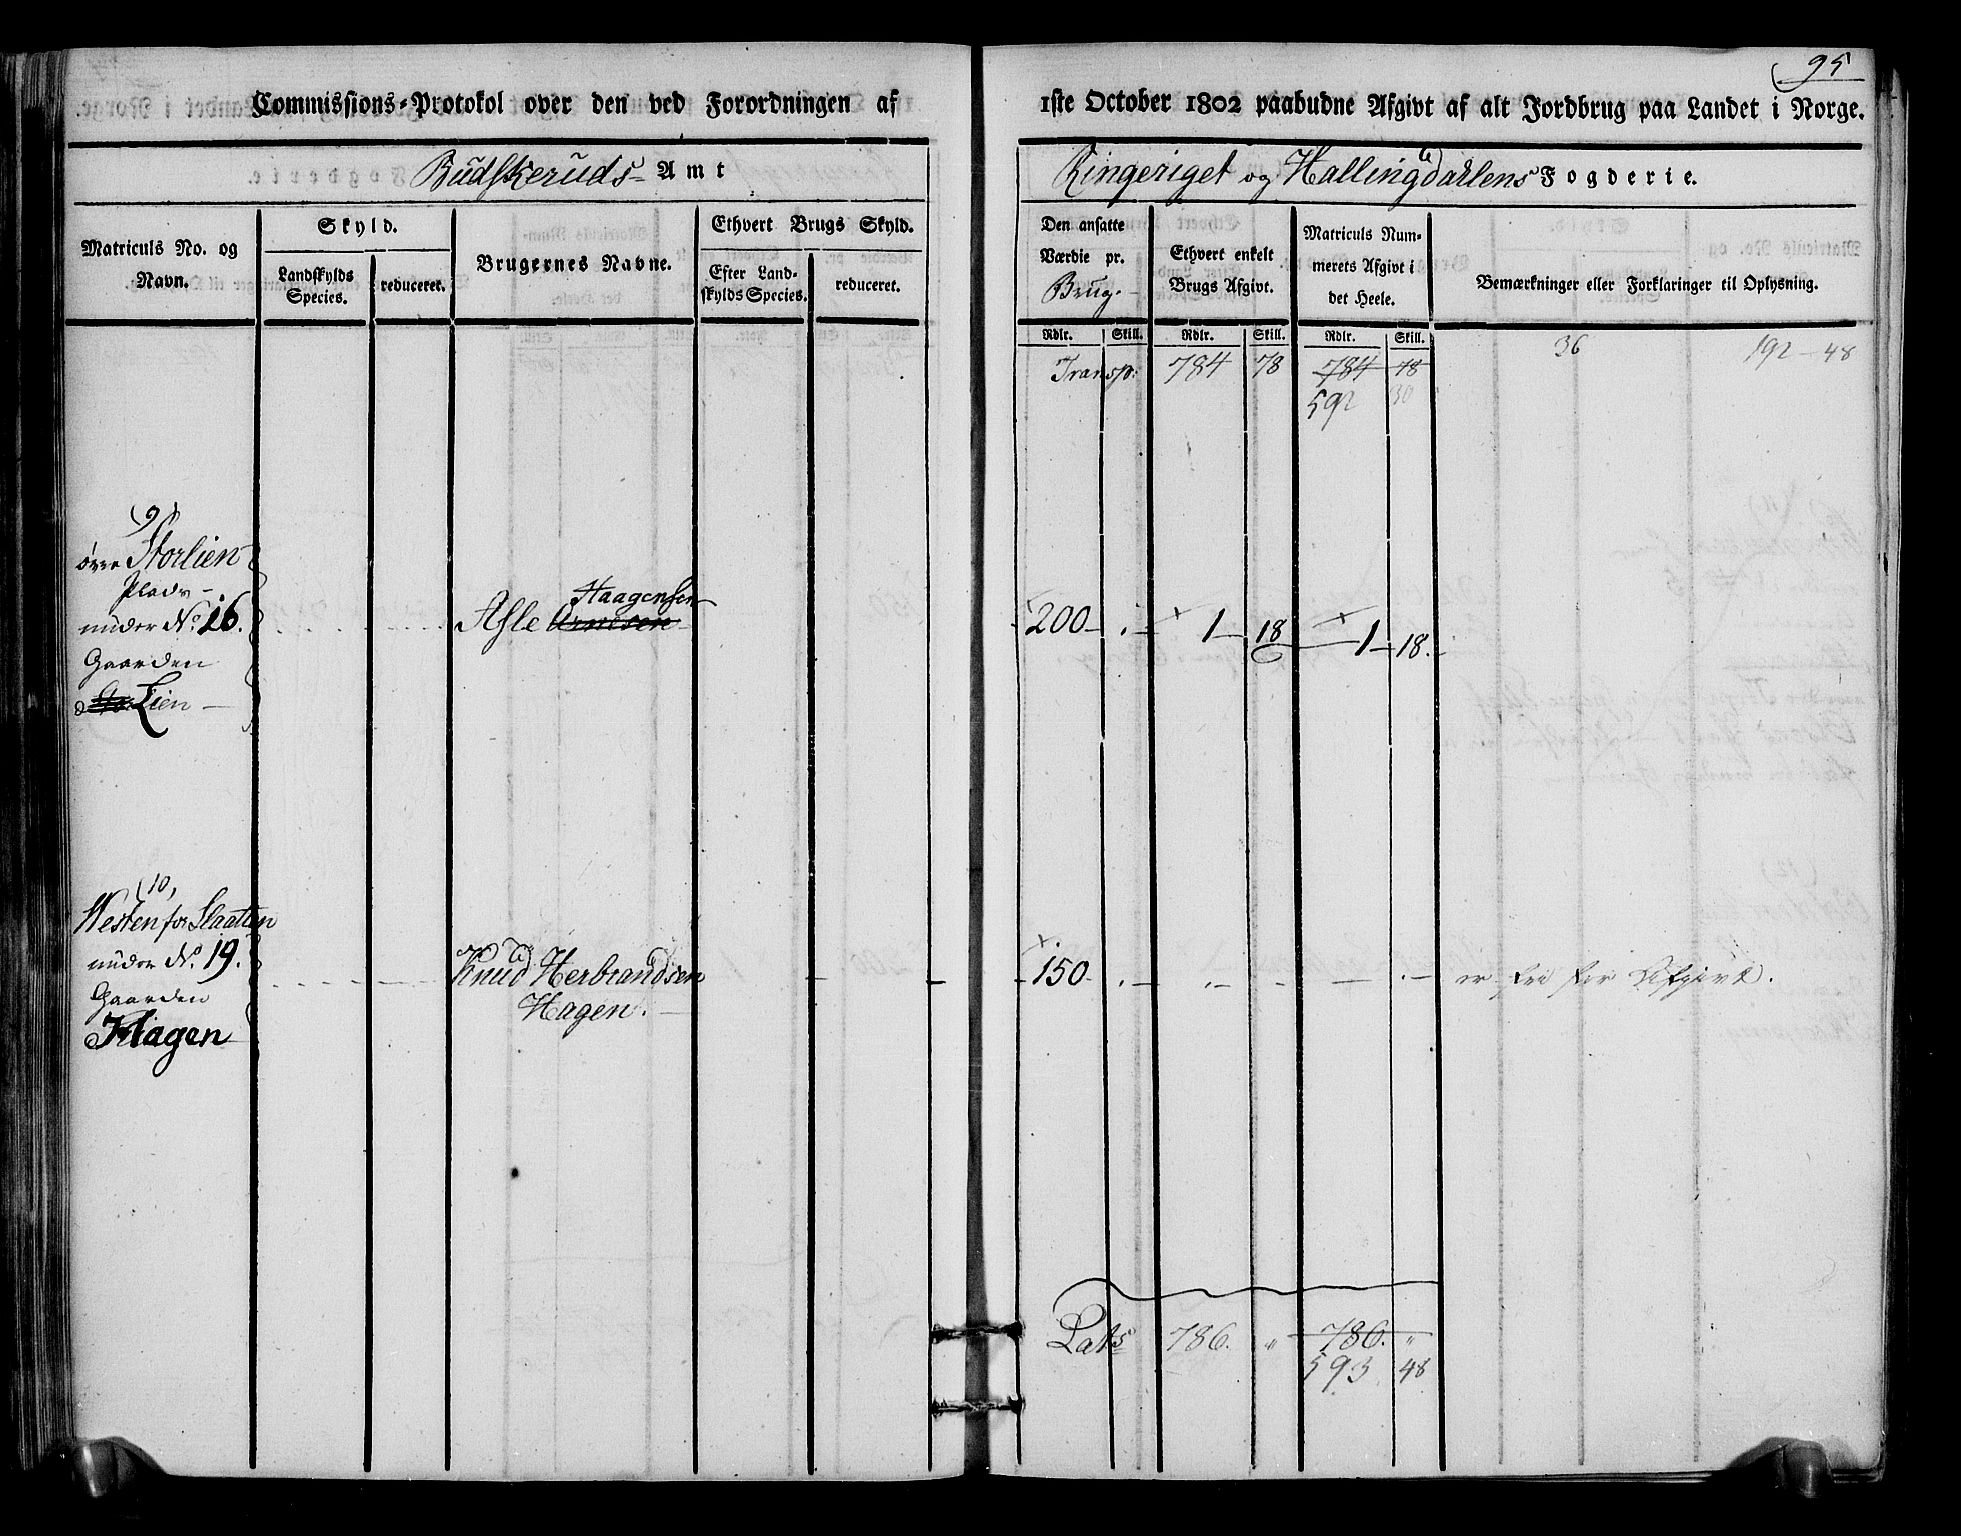 95
Commissions-Protokol over den ved Forordningen af 1ste October 1802 paabudne Afgivt af alt Jordbrug paa Landet i Norge.
Budskeruds Amt
Ringeriget og Hallingdahlens Fogderie.
Matriculs No. og Navn.
Skyld.
Landskylds Species.
reduceret.
Brugernes Navne.
Ethvert Brugs Skyld.
Efter Landskylds Species.
reduceret.
Den ansatte Værdie pr. Brug.
Ethvert enkelt Brugs Afgivt.
Matriculs Nummerets Afgivt i det Heele.
Bemærkninger eller Forklaringer til Oplysning.
Rdlr. Skill. Rdlr. Skill. Rdlr. Skill.
36 192 - 48
Transp: 784 78 784 78
592 30
9)
øvre Storlien
Plads
under No. 16. Asle Arnesen Haagensen 200 . 1 18 1 18.
Gaarden
Lien
(10,
Westen for Slaatten
under No. 19. Knud Herbrandsen 150 . er fri for Afgivt.
Gaarden Hagen.
Hagen
Lats 786. " 786. "
593 48